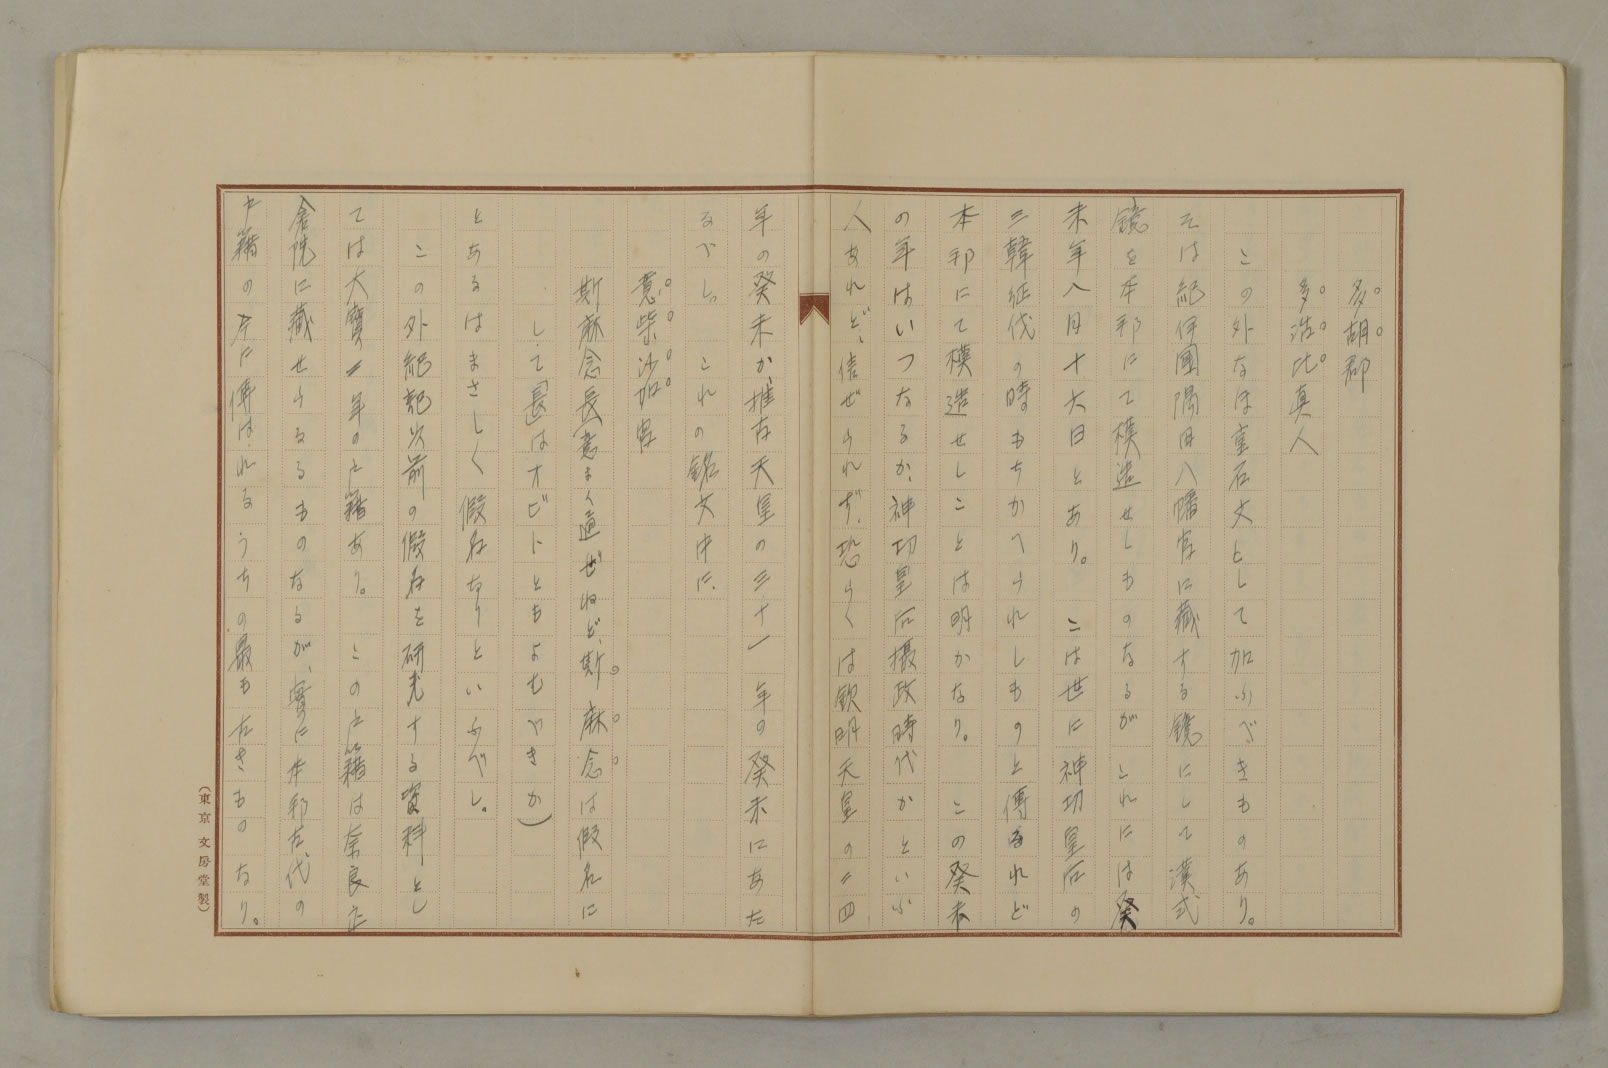 多胡郡
多治比真人
この外なほ金石文として加ふべきものあり。
そは紀伊國隅田八幡宮に藏する鏡にして漢式
鏡を本邦にて模造せしものなるがこれには癸
未年八月十六日とあり。こは世に神功皇后の
三韓征伐の時もちかへられしものと傳ふれど
本邦にて模造せしことは明かなり。この癸未
の年はいつなるか、神功皇后攝政時代かといふ
人あれど、信ぜられず、恐らくは欽明天皇の二四
年の癸未か、推古天皇の三十一年の癸未にあた
るべし。これの銘文中に、
意柴沙加宮
斯麻念長(意よく通ぜねど、斯麻念は假名に
して長はオビトともよむべきか)
とあるはまさしく假名なりといふべし。
この外紀記以前の假名を研究する資料とし
ては大寶二年の戸籍あり。この戸籍は奈良正
倉院に藏せらるるものなるが、實に本邦古代の
戸籍の今に傳はれるうちの最も古きものなり。
(東京 文房堂製)